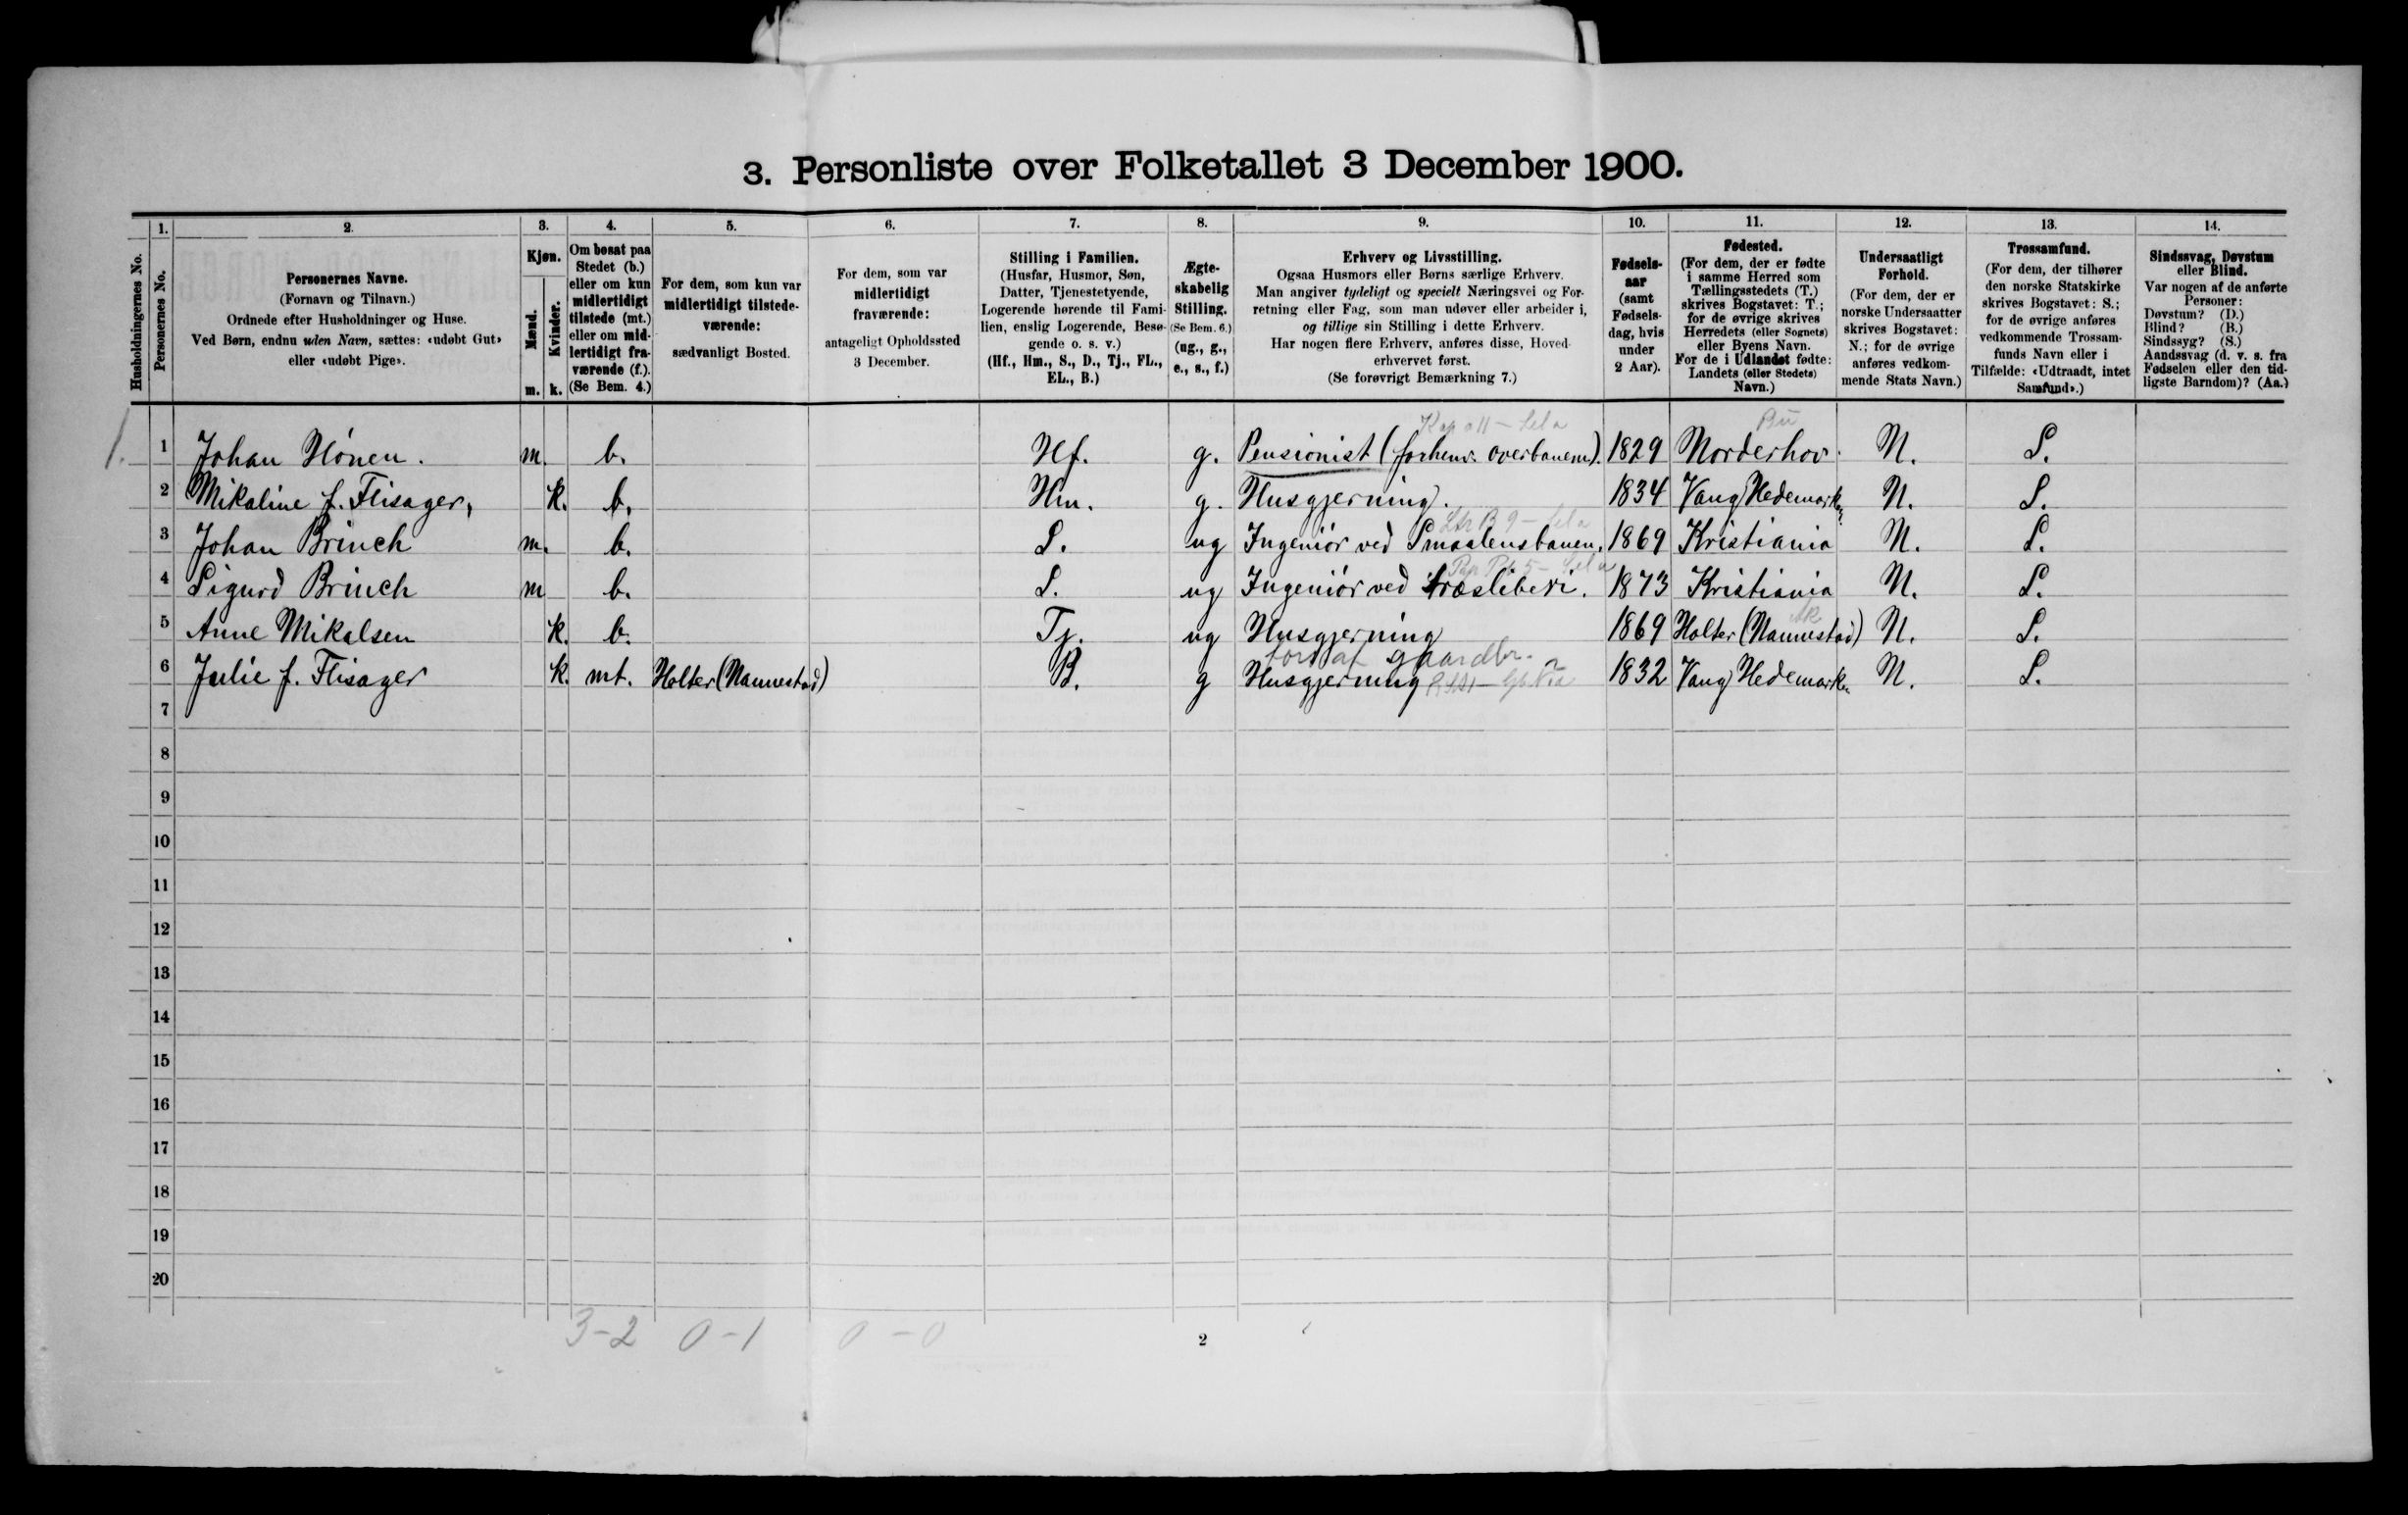 3. Personliste over Folketallet 3 December 1900.
Husholdningernes No.
1. Personernes No.
2. Personernes Navne.
(Fornavn og Tilnavn.)
Ordnede efter Husholdninger og Huse.
Ved Børn, endnu uden Navn, sættes: «udøbt Gut»
eller «udøbt Pige».
3. Kjøn.
Mænd. Kvinder.
m. k.
4. Om bosat paa
Stedet (b.)
eller om kun
midlertidigt
tilstede (mt.)
eller om mid-
lertidigt fra-
værende (f.).
(Se Bem. 4.)
5. For dem, som kun var
midlertidigt tilstede-
værende:
sædvanligt Bosted.
6. For dem, som var
midlertidigt
fraværende:
antageligt Opholdssted
3 December.
7. Stilling i Familien.
(Husfar, Husmor, Søn,
Datter, Tjenestetyende,
Logerende hørende til Fami-
lien, enslig Logerende, Besø-
gende o. s. v.)
(Hf., Hm., S., D., Tj., FL.,
EL., B.)
8. Ægte-
skabelig
Stilling.
(Se Bem. 6.)
(ug., g.,
e., s., f.)
9. Erhverv og Livsstilling.
Ogsaa Husmors eller Børns særlige Erhverv.
Man angiver tydeligt og specielt Næringsvei og For-
retning eller Fag, som man udøver eller arbeider i,
og tillige sin Stilling i dette Erhverv.
Har nogen flere Erhverv, anføres disse, Hoved-
erhvervet først.
(Se forøvrigt Bemærkning 7.)
10. Fødsels-
aar
(samt
Fødsels-
dag, hvis
under
2 Aar).
11. Fødested.
(For dem, der er fødte
i samme Herred som
Tællingsstedets (T.)
skrives Bogstavet: T.;
for de øvrige skrives
Herredets (eller Sognets)
eller Byens Navn.
For de i Udlandet fødte:
Landets (eller Stedets)
Navn.)
12. Undersaatligt
Forhold.
(For dem, der er
norske Undersaatter
skrives Bogstavet:
N.; for de øvrige
anføres vedkom-
mende Stats Navn.)
13. Trossamfund.
(For dem, der tilhører
den norske Statskirke
skrives Bogstavet: S.;
for de øvrige anføres
vedkommende Trossam-
funds Navn eller i
Tilfælde: «Udtraadt, intet
Samfund».)
14. Sindssvag, Døvstum
eller Blind.
Var nogen af de anførte
Personer:
Døvstum? (D.)
Blind? (B.)
Sindssyg? (S.)
Aandssvag (d. v. s. fra
Fødselen eller den tid-
ligste Barndom)? (Aa.)
Bu
1. 1 Johan Hönen. m. b. Hf. g. Pensionist (forhenv. overbanem). 1829 Norderhov. N. S.
2 Mikaline f. Flisager, k. b. Hm. g. Husgjerning. 1834 Vang Hedemarken N. S.
3 Johan Brinch m. b. S. ug Ingeniör ved Smaalensbanen. 1869 Kristiania N. S.
4 Sigurd Brinch m b. S. ug Ingeniör ved træsliberi. 1873 Kristiania N. S.
Ak
5 Anne Mikalsen k. b. Tj. ug Husgjerning 1869 Holter (Nannestad) N. S.
gaardbr.
6 Julie f. Flisager k. mt. Holter (Nannestad) B. g Husgjerning 1832 Vang Hedemarken N. S.
7
8
9
10
11
12
13
14
15
16
17
18
19
20
3-2 0-1 0-0
2